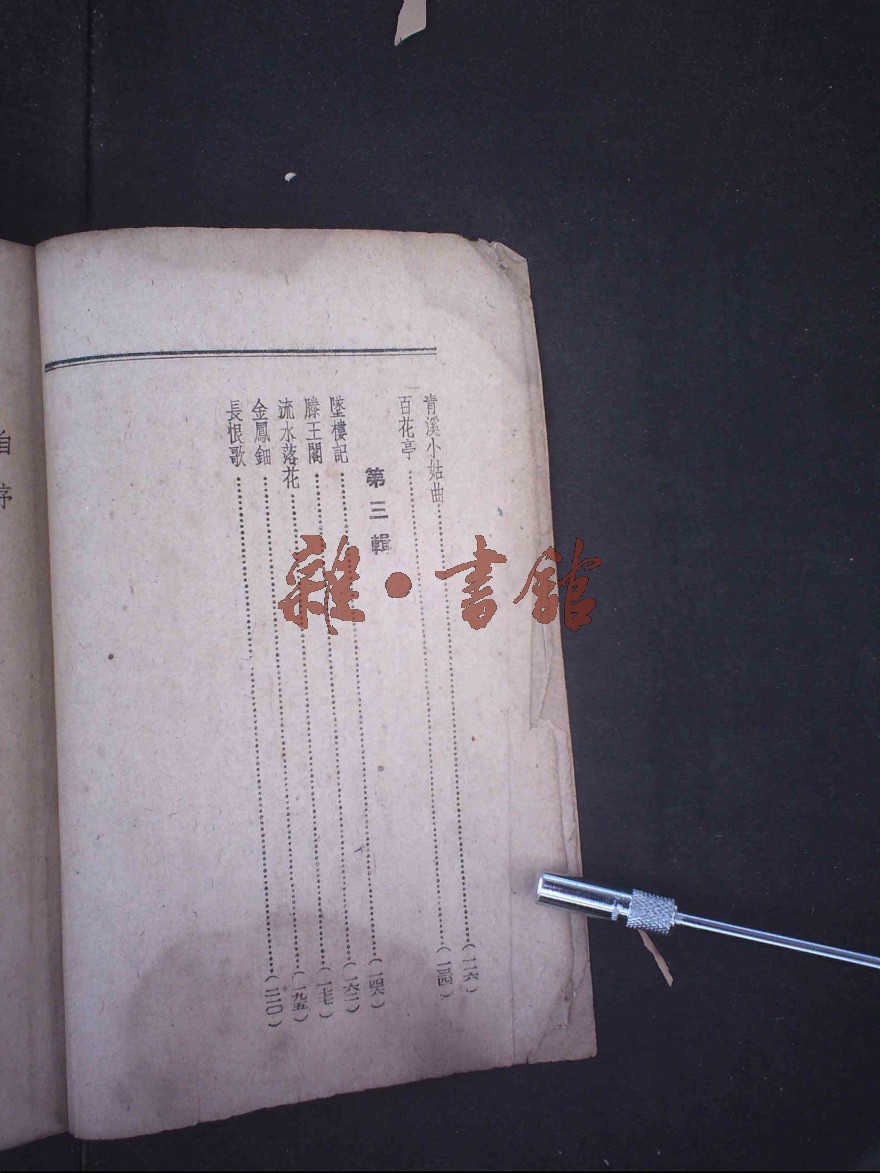 青溪小姑曲………(一二六)
百花亭………(一三四)
第三輯
墜樓記………(一四六)
滕王閣………(一六二)
流水落花………(一七七)
金鳳鈿………(一九五)
長恨歌………(二二〇)
自序
雜·書館